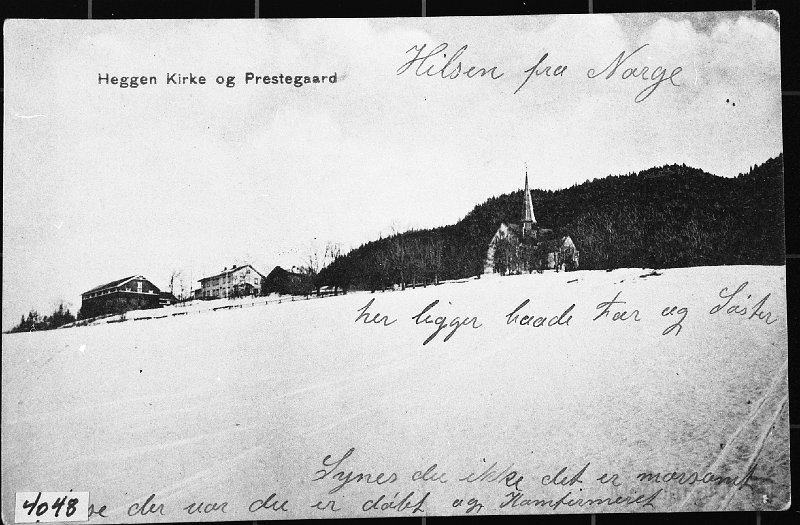 Heggen Kirke og Prestegaard
Hilsen fra Norge
her ligger baade Far og Søster
Synes du ikke det er morsomt
se der var du er døbt og Komfirmeret
4048